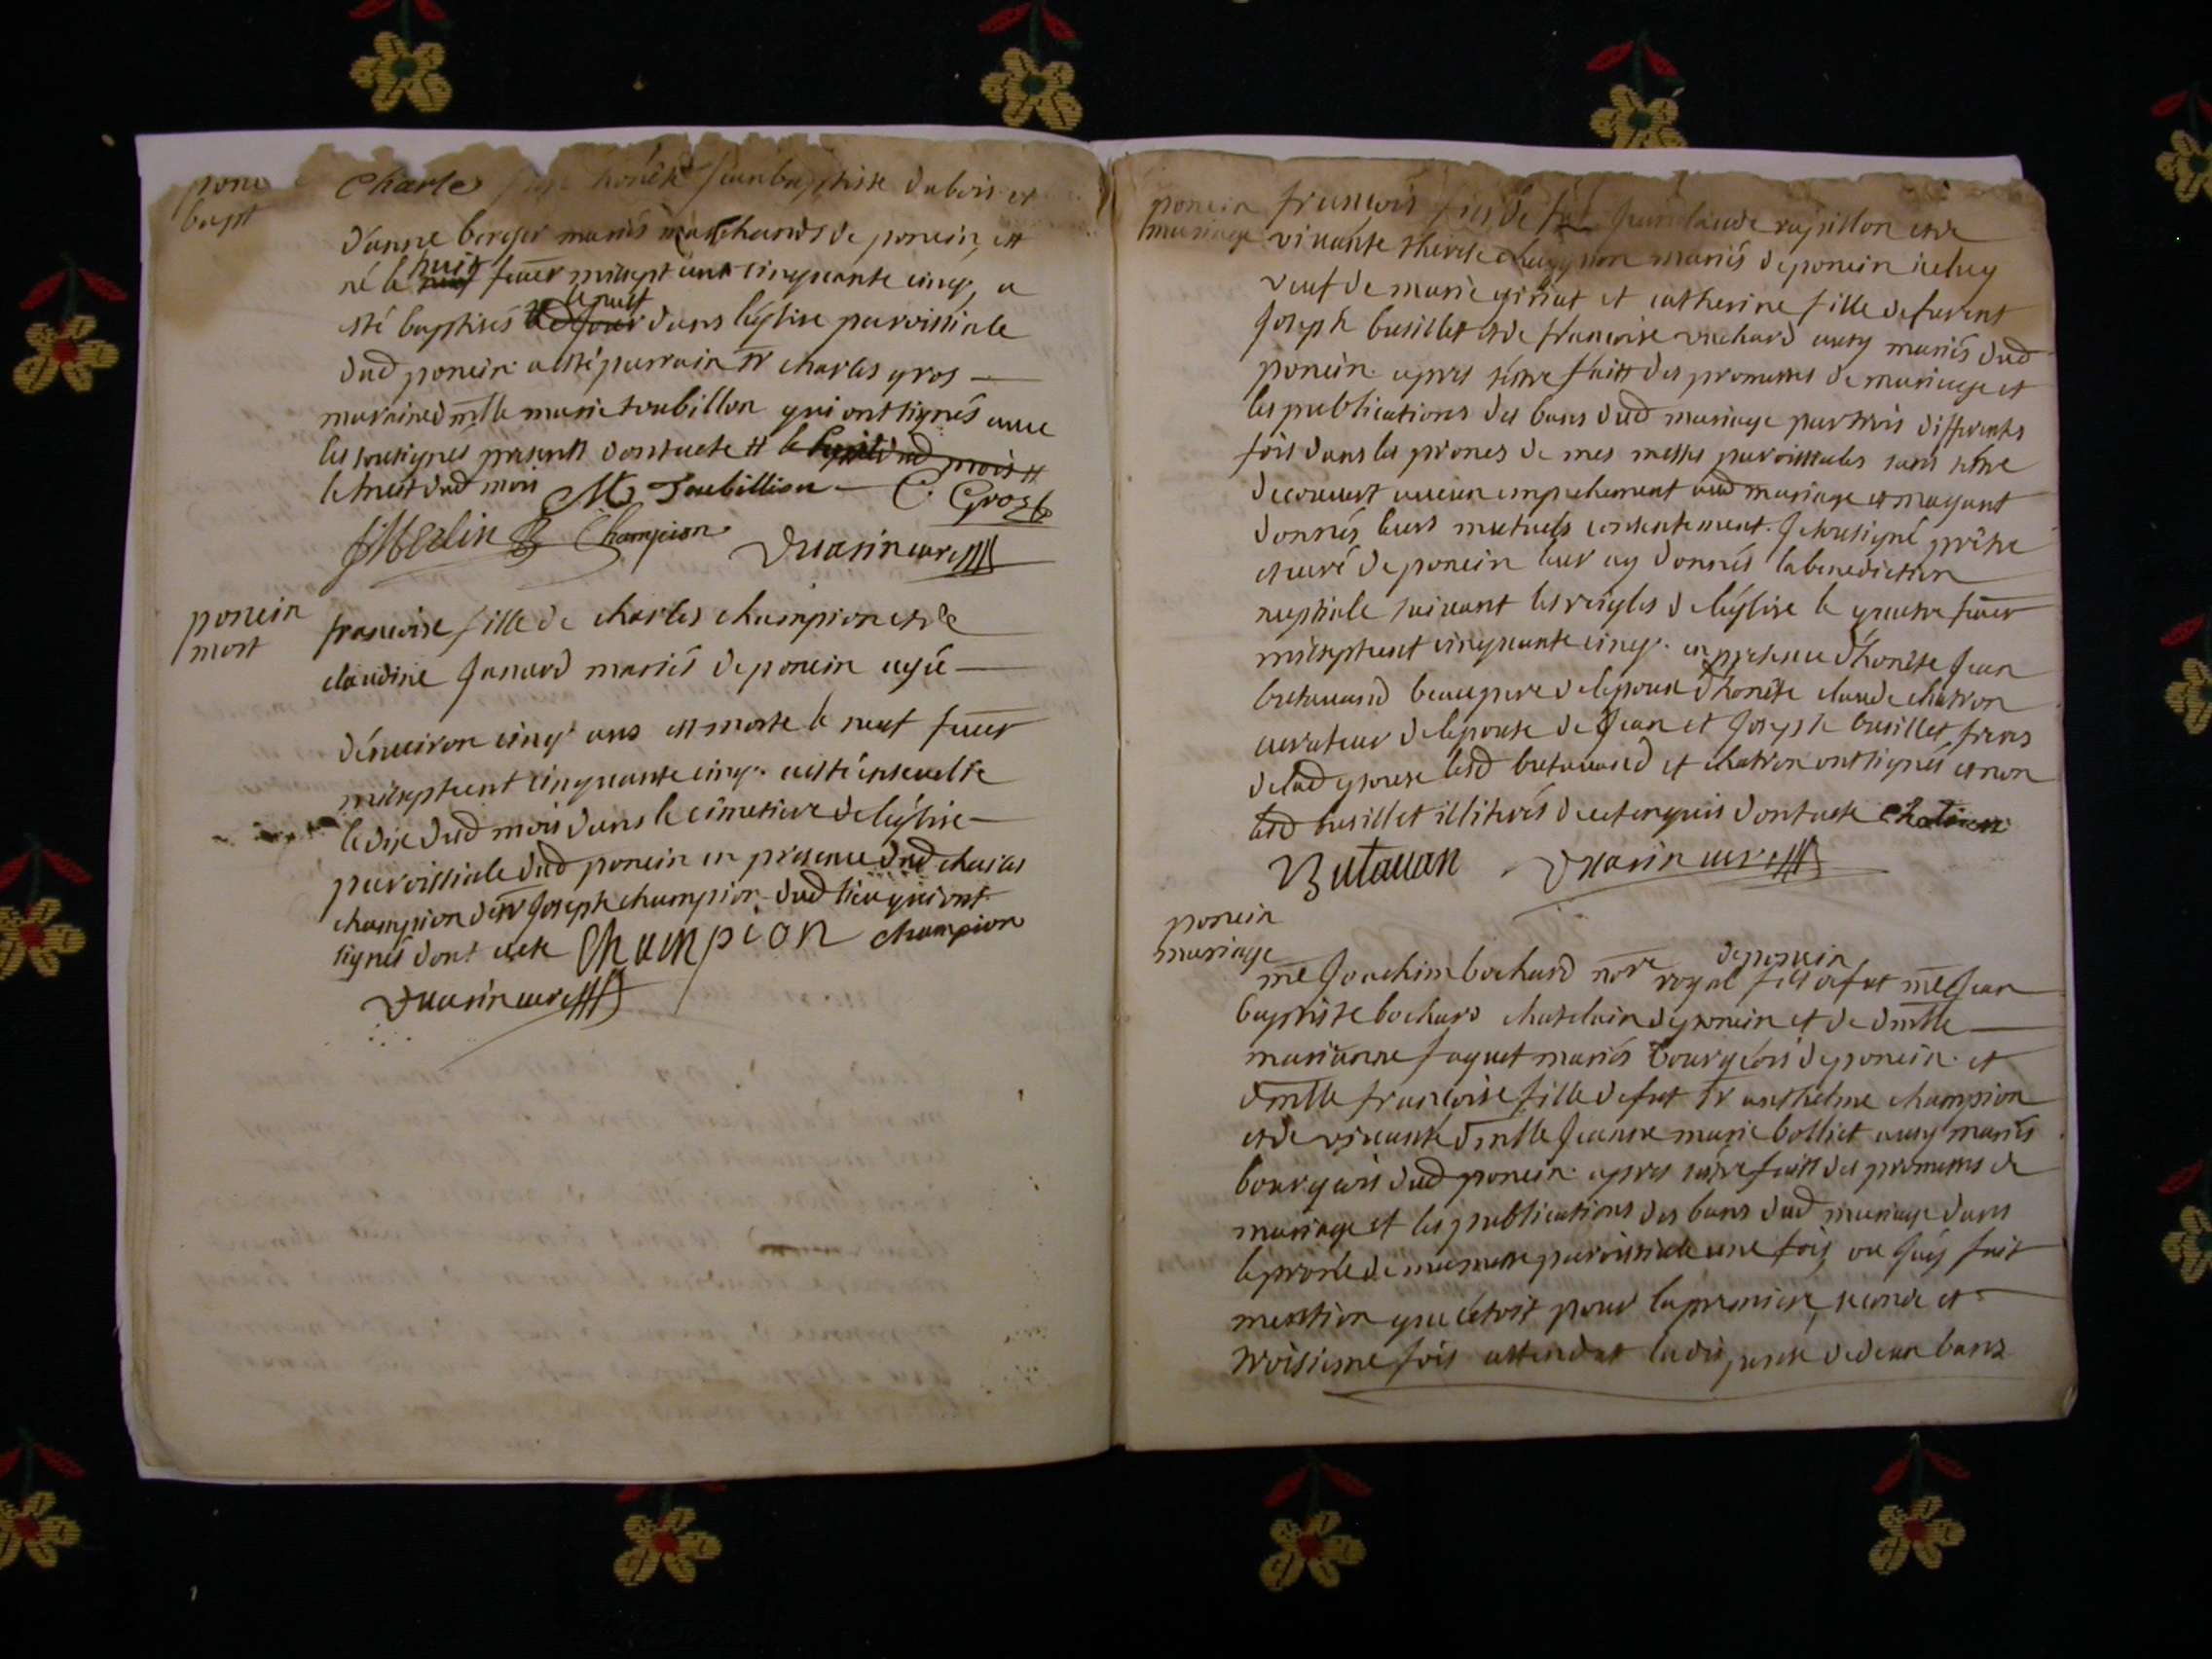 ponc
bapt
Charle honête Jeanbaptiste dubois et
d'anne berger mariés marchands de poncin, est
né le huit feuer milsept cent cinquante cinq, a
esté baptisés le neuf dans léglise paroissiale
dud poncin a esté parrain sr charles gros
maraine dmlle marie toubillon qui ont signés auec
les sousignés presents dont acte le huit dud mois
le huit dud mois M Toubillion C. Gros
Champion curé
poncin
mort
francoise fille de charles champion et de
claudine Janard mariés de poncin agée
d'enuiron cinq ans est morte le neuf feuer
milseptcent cinquante cinq. a esté enseuelie
le dix dud mois dans le cimetiere de léglise
paroissiale dud poncin en presence dud charles
champion de sr Joseph champion dud lieu qui ont
signés dont acte Champion champion
curé
poncin
mariage
francois fils de fut Jeanclaude rapillon et de
viuante therese mariés de poncin iceluy
veuf de marie giriat et catherine fille de fuent
Joseph busillet et de francoise vuchard aussy mariés dud
poncin apres sestre faitt des promesses de mariage et
les publications des bans dud mariage par trois differentes
fois dans les prones de mes messes paroissiales sans sestre
decouuert aucun empechement aud mariage et mayant
donnés leurs mutuels consentement. Je sousigné prêtre
et curé de poncin leur ay donnés la benediction
nuptiale suiuant les reigles de léglise le quatre feuer
milseptcent cinquante cinq. en presence d'honête Jean
butauand beaupere de lepoux d'honête claude chatron
curateur de lepouse de Jean et Joseph busillet freres
de lad epouse lesd butauand et chatron ont signés et non
lesd busillet illiterés de ce enquis dont acte chatron
Butauan curé
poncin
mariage
me Joachim bochard nore royal de poncin fils de fut me Jean
baptiste bochard chatelain de poncin et de dmlle
marianne faquet mariés bourgeois de poncin et
dmlle francoise fille de fut sr anthelme champion
et de viuante dmlle Jeanne marie bolliet aussy mariés
bourgeois dud poncin apres sestre faitt des promesses de
mariage et les publications des bans dud mariage dans
le prone de ma messe paroissiale une fois, ou Jay fait
mention que cetoit pour la premiere, seconde et
troisiesme fois attendut la dispense de deux bans